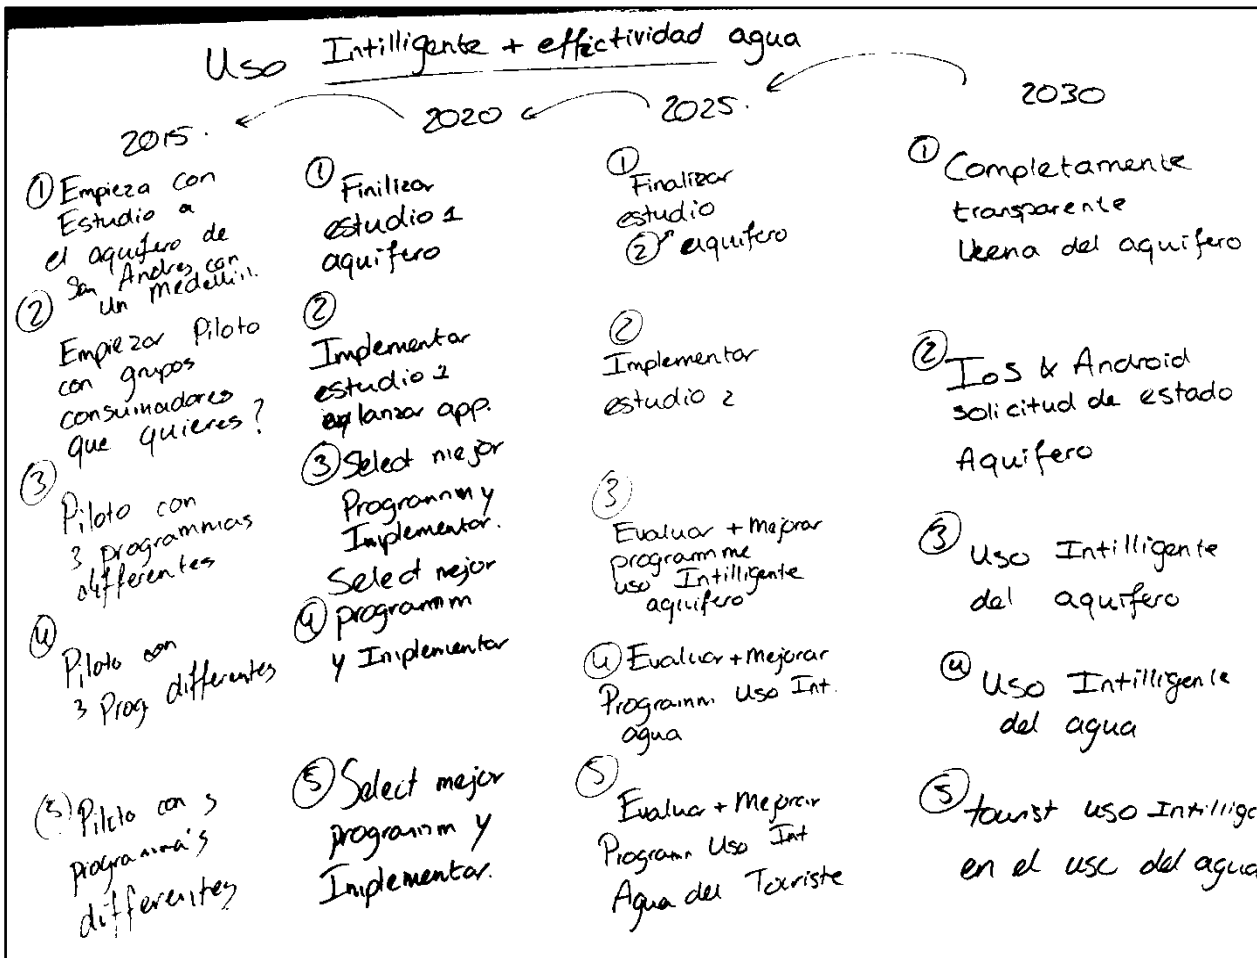 Uso Intilligente + effictividad agua
2015. 2020 2025. 2030
① Empieza con
Estudio a
el aquifero de
San Andres con
un Medellin.
② Empiezar Piloto
con grupos
consuinadores
que quieres?
③ Piloto con
3 programmas
differentes
④ Piloto con
3 Prog differentes
(5) Piloto con 3
programma's
differentes
① Finilizar
estudio 1
aquifero
②
Implementar
estudio 1
lanzar app.
③ Select mejor
Programm y
Implementar.
Select mejor
④ programm
y Implementar
⑤ Select mejor
programm y
Implementar.
①
Finalizar
estudio
② aquifero
②
Implementar
estudio 2
③
Evaluar + Mejorar
programme
uso Intilligente
aquifero
④ Evaluar + Mejorar
Programm. Uso Int.
agua
⑤
Evaluar + Mejorar
Programm Uso Int
Agua del Touriste
① Completamente
transparente
del aquifero
② IoS & Android
solicitud de estado
Aquifero
③ Uso Intilligente
del aquifero
④ Uso Intilligente
del agua
⑤ tourist uso Intillige
en el uso del agua